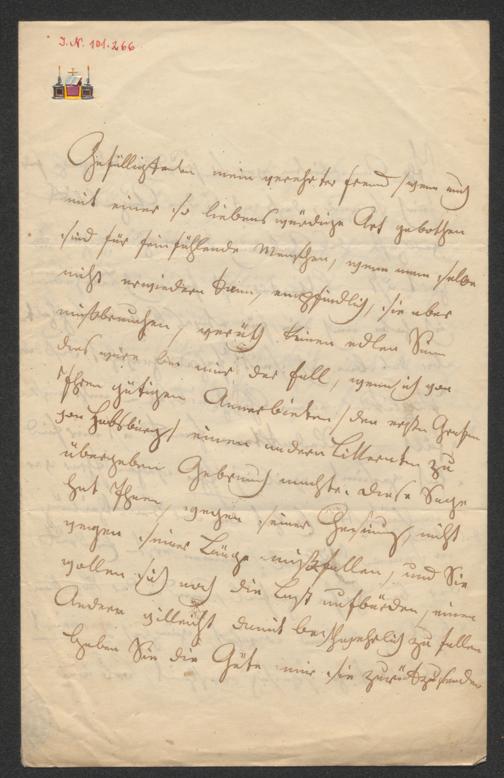 I. N. 101.266
Gefälligkeiten mein verehrter Freund, wenn auch
mit einer so liebenswürdigen Art gebothen
sind für feinfühlende Menschen, wenn man selbe
nicht erwiedern kann, empfindlich, sie aber
mißbrauchen, verräth keinen edlen Sinn
dies wäre bei mir der Fall, wenn ich von
Ihrem gütigen Anerbiethen / den ersten Grafen
von Habsburg / einem andern Litteraten zu
übergeben Gebrauch machte. Diese Sage
hat Ihnen, wegen seiner nicht
wegen seiner Länge mißfallen, und Sie
wollen sich noch die Last aufbürden, einem
Andern villeicht damit zu fallen
haben Sie die Güte mir sie zurückzusenden